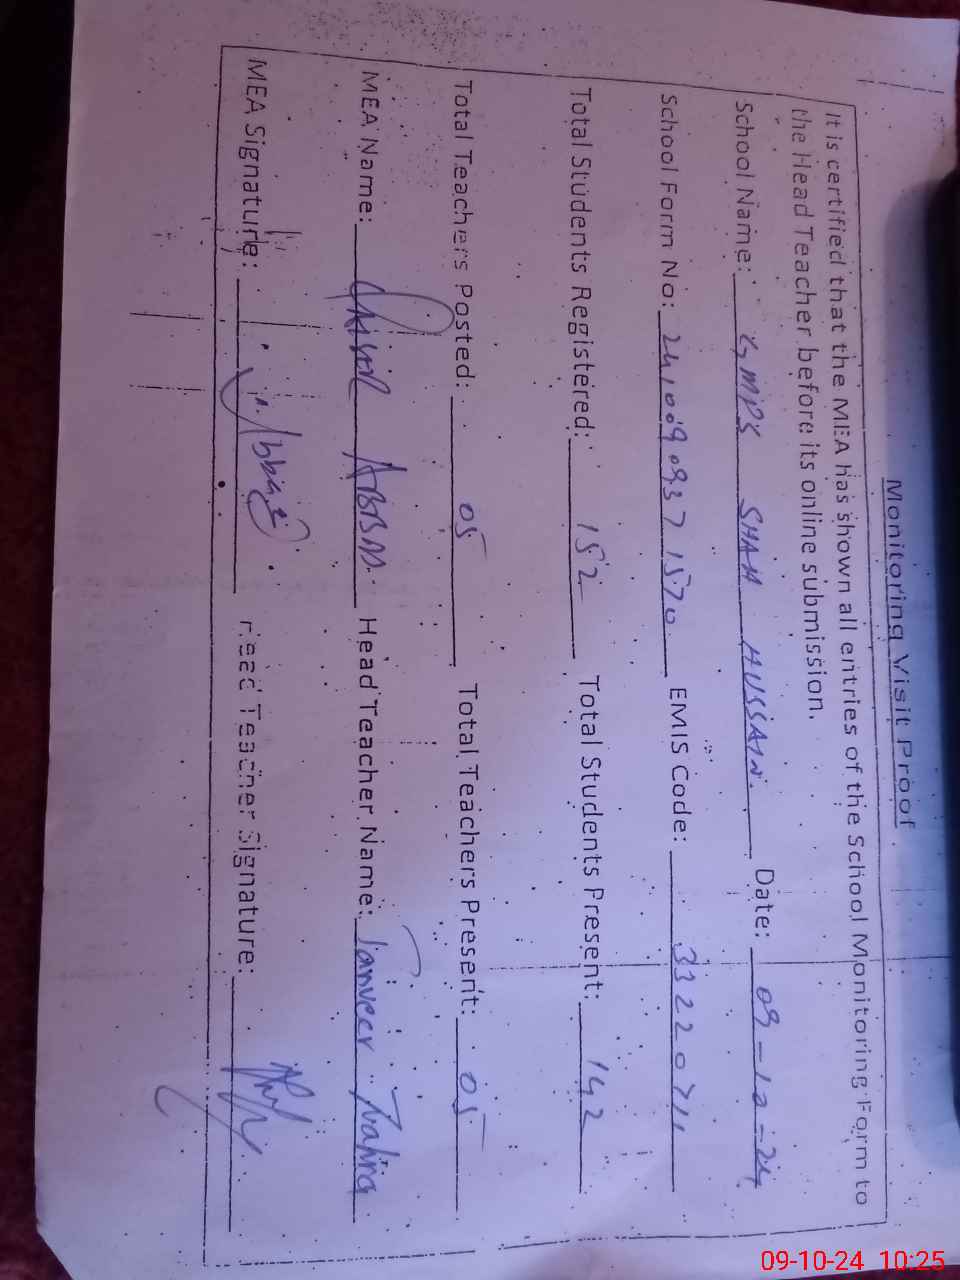 Monitoring Visit Proof
It is certified that the MEA has shown all entries of the School Monitoring Form to
the Head Teacher before its online submission.
School Name: GMPS SHAH HUSSAIN. Date: 09-10-24
School Form No: EMIS Code: 33220711
Total Students Registered: 152 Total Students Present: 142
Total Teachers Posted: 05 Total Teachers Present: 05
MEA Name: ABBAS. Head Teacher Name: Tanveer Zahra
MEA Signature: Abbas Head Teacher Signature:
09-10-24 10:25